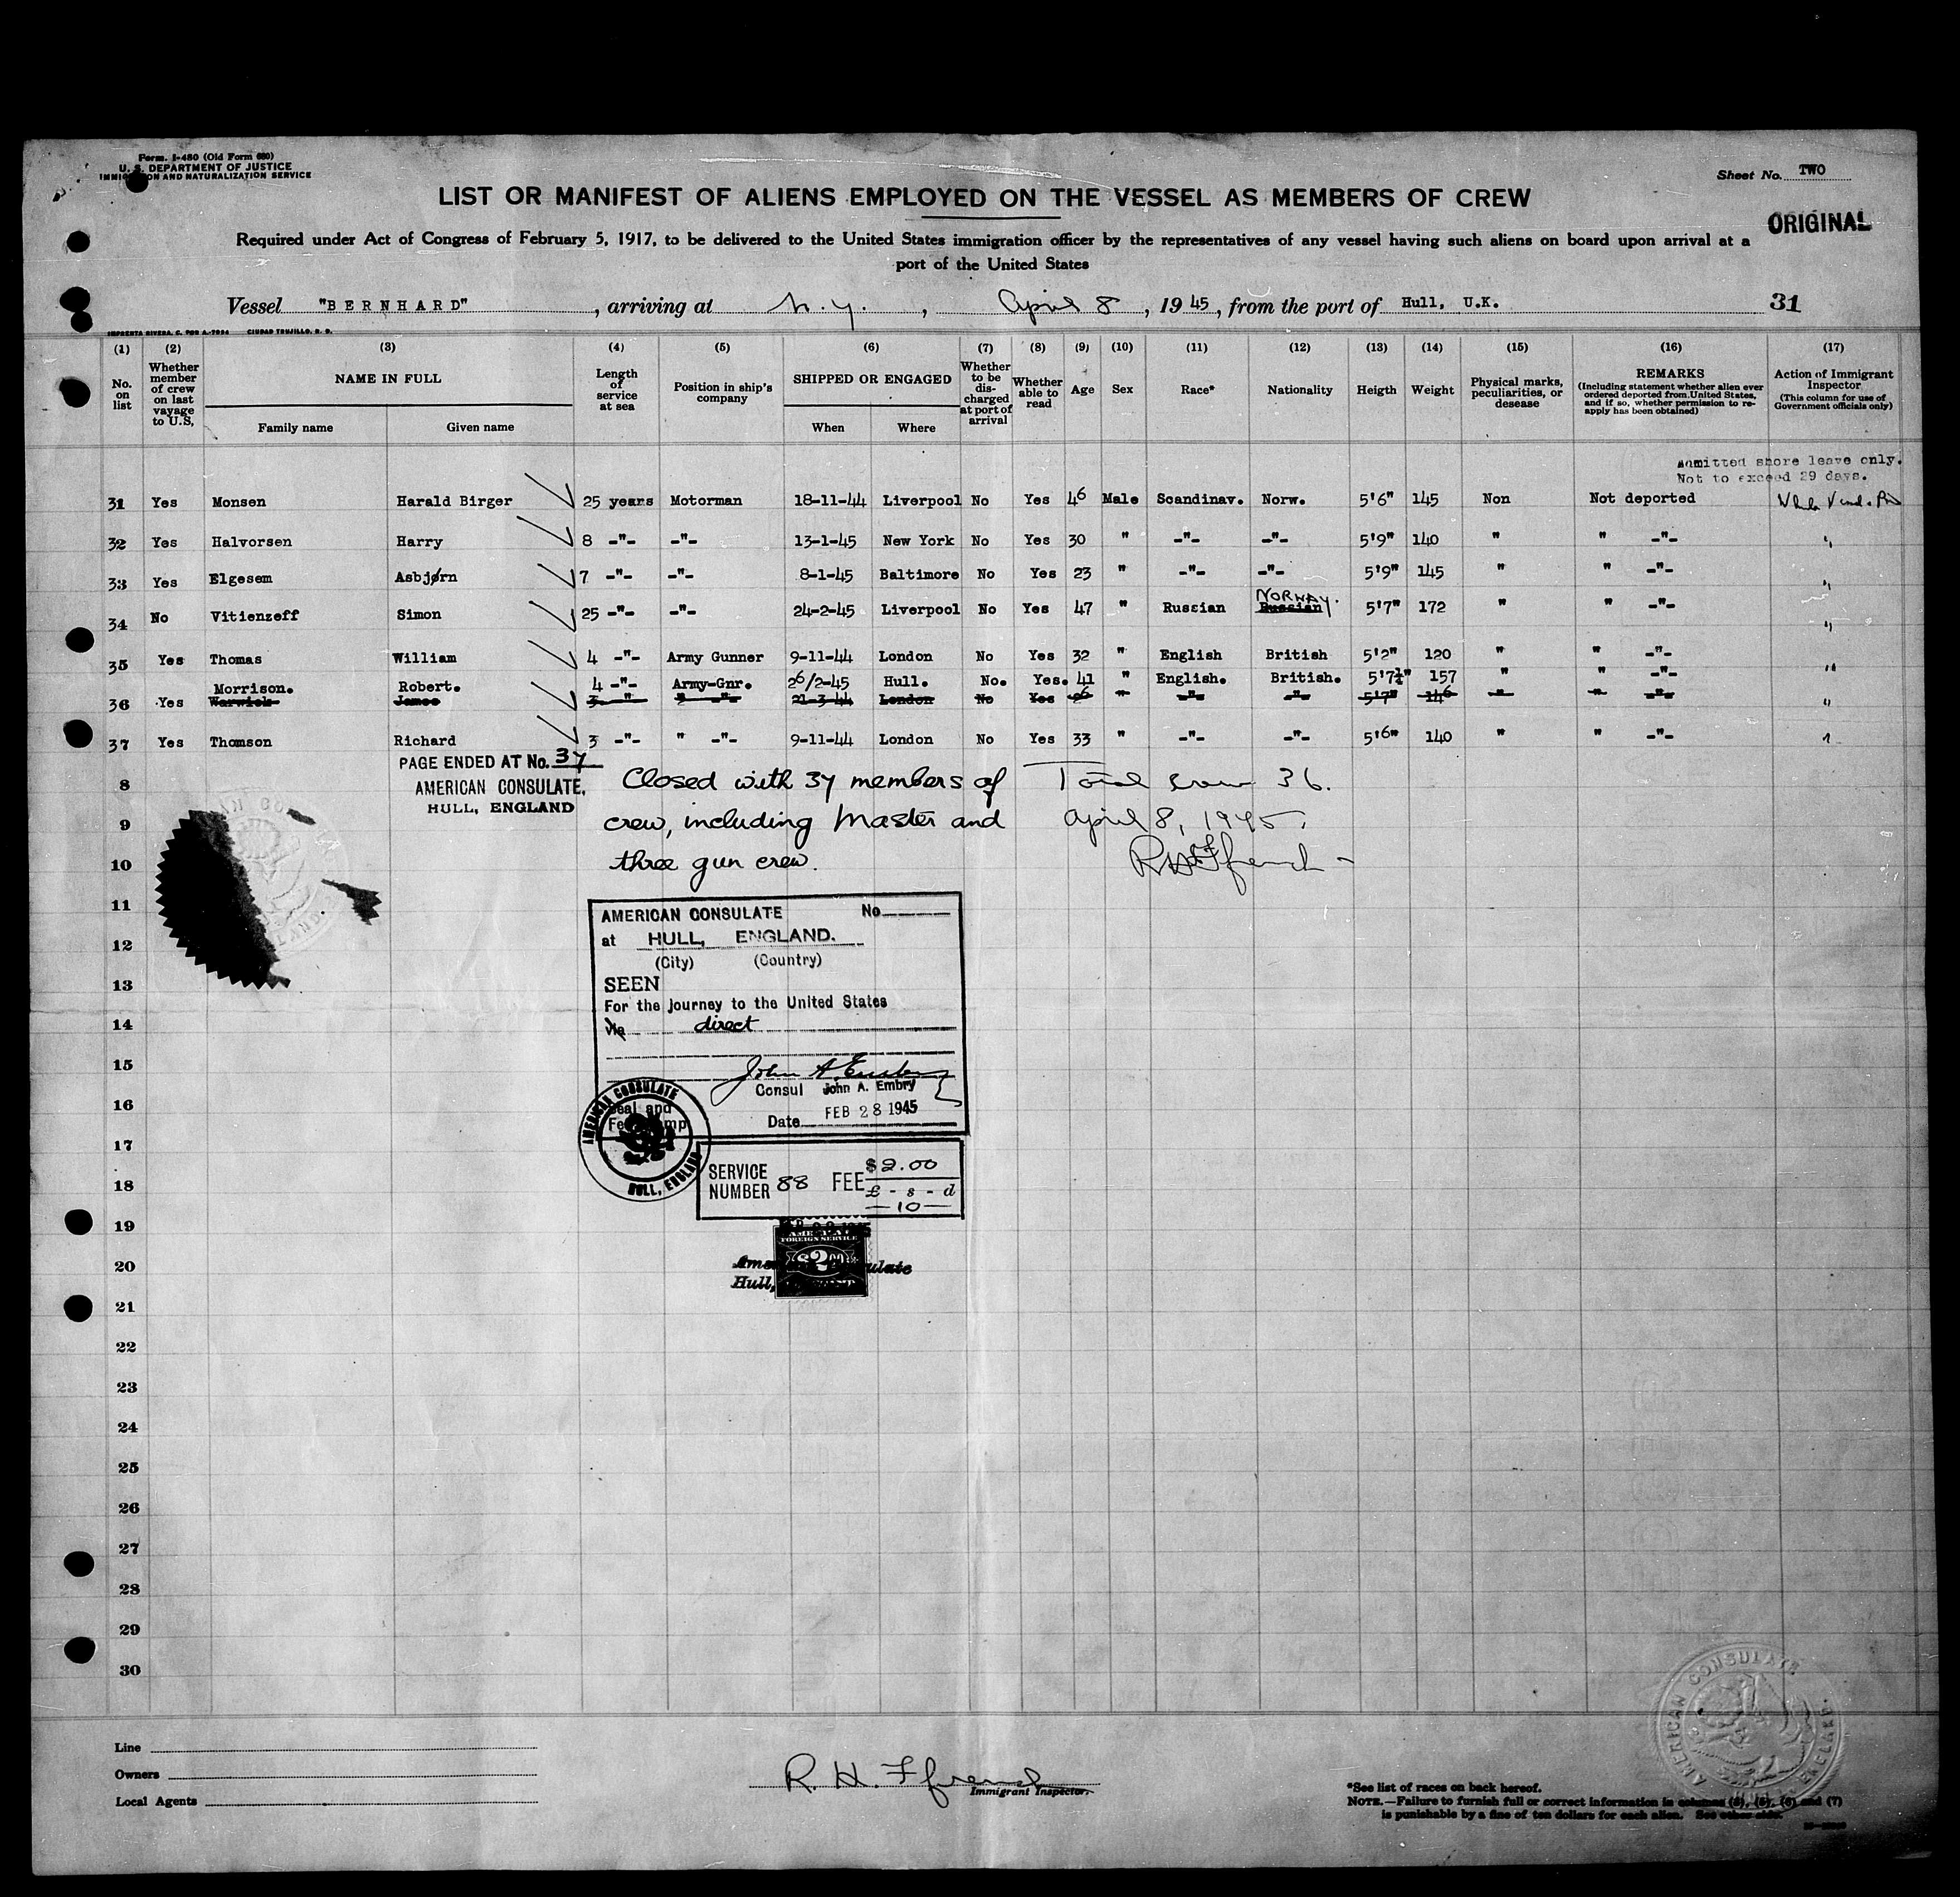 Form. I-480 (Old Form 680)
U. S. DEPARTMENT OF JUSTICE
IMMIGRATION AND NATURALIZATION SERVICE
Sheet No. TWO
LIST OR MANIFEST OF ALIENS EMPLOYED ON THE VESSEL AS MEMBERS OF CREW
ORIGINAL
Required under Act of Congress of February 5, 1917, to be delivered to the United States immigration officer by the representatives of any vessel having such aliens on board upon arrival at a
port of the United States
Vessel "BERNHARD", arriving at N.Y., April 8, 1945, from the port of Hull, U.K. 31
IMPRENTA RIVERA, C. POR A.-7804 CIUDAD TRUJILLO, R. D.
(1) (2) (3) (4) (5) (6) (7) (8) (9) (10) (11) (12) (13) (14) (15) (16) (17)
No. on list
Whether member of crew on last vayage to U.S,
NAME IN FULL
Family name Given name
Length of service at sea
Position in ship's company
SHIPPED OR ENGAGED
When Where
Whether to be discharged at port of arrival
Whether able to read
Age
Sex
Race*
Nationality
Heigth
Weight
Physical marks, peculiarities, or desease
REMARKS
(Including statement whether alien ever ordered deported from United States, and if so, whether permission to re-apply has been obtained)
Action of Immigrant Inspector
(This column for use of Government officials only)
Admitted shore leave only.
Not to exceed 29 days.
31 Yes Monsen Harald Birger 25 years Motorman 18-11-44 Liverpool No Yes 46 Male Scandinav. Norw. 5'6" 145 Non Not deported
32 Yes Halvorsen Harry 8 -"- -"- 13-1-45 New York No Yes 30 " -"- -"- 5'9" 140 " " -"- "
33 Yes Elgesem Asbjørn 7 -"- -"- 8-1-45 Baltimore No Yes 23 " -"- -"- 5'9" 145 " " -"- "
NORWAY.
34 No Vitienzeff Simon 25 -"- -"- 24-2-45 Liverpool No Yes 47 " Russian Russian 5'7" 172 " " -"- "
35 Yes Thomas William 4 -"- Army Gunner 9-11-44 London No Yes 32 " English British 5'2" 120 " " -"- "
Morrison. Robert. 4 -"- Army-Gnr. 26/2-45 Hull. No. Yes. 41 " English. British. 5'7½" 157 " " -"-
36 Yes Warwick James 3 " " -"- 21-3-44 London No Yes 26 " -"- -"- 5'7" 146 " " -"- "
37 Yes Thomson Richard 3 -"- " -"- 9-11-44 London No Yes 33 " -"- -"- 5'6" 140 " " -"- "
PAGE ENDED AT No. 37
AMERICAN CONSULATE,
HULL, ENGLAND
Closed with 37 members of
crew, including Master and
three gun crew.
Total crew 36.
April 8, 1945.
R H Ffrench
8
9
10
11
12
13
14
15
16
17
18
19
20
21
22
23
24
25
26
27
28
29
30
AMERICAN CONSULATE No
at HULL, ENGLAND.
(City) (Country)
SEEN
For the journey to the United States
via direct
John A. Embry
Consul John A. Embry
Date FEB 28 1945
Seal and
Fee Stamp
AMERICAN CONSULATE
HULL, ENGLAND
SERVICE
NUMBER 88 FEE $2.00
£ - s - d
—10—
FOREIGN SERVICE
$2.00
American Consulate
Hull,
Line
Owners
Local Agents
R. H. Ffrench
Immigrant Inspector.
*See list of races on back hereof.
NOTE.—Failure to furnish full or correct information in columns (3), (5), (6) and (7)
is punishable by a fine of ten dollars for each alien. See other side.
AMERICAN CONSULATE
ENGLAND.